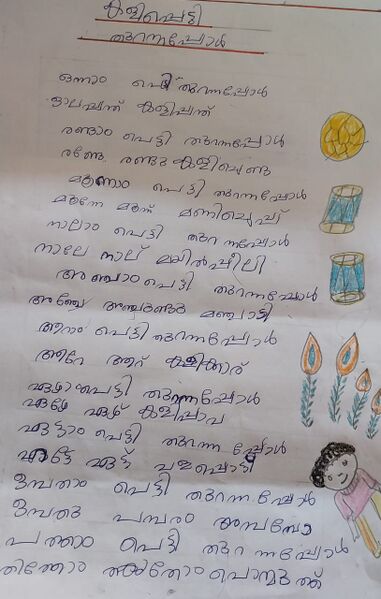 കളിപ്പെട്ടി
തുറന്നപ്പോൾ
ഒന്നാം പെട്ടി തുറന്നപ്പോൾ
ഓലപ്പന്ത് കളിപ്പന്ത്
രണ്ടാം പെട്ടി തുറന്നപ്പോൾ
രണ്ടേ രണ്ടു കളിചെണ്ട
മൂന്നാം പെട്ടി തുറന്നപ്പോൾ
മൂന്നേ മൂന്ന് മണിച്ചെപ്പ്
നാലാം പെട്ടി തുറന്നപ്പോൾ
നാലേ നാല് മയിൽപ്പീലി
അഞ്ചാം പെട്ടി തുറന്നപ്പോൾ
അഞ്ചേ അഞ്ചുണ്ടേ മഞ്ചാടി
ആറാം പെട്ടി തുറന്നപ്പോൾ
ആറേ ആറ് കളിക്കാറ്
ഏഴാംപെട്ടി തുറന്നപ്പോൾ
ഏഴേ ഏഴ് കളിപ്പാവ
എട്ടാം പെട്ടി തുറന്നപ്പോൾ
എട്ടേ എട്ട് വളപ്പൊട്ട്
ഒമ്പതാം പെട്ടി തുറന്നപ്പോൾ
ഒമ്പതു പമ്പരം അമ്പമ്പോ
പത്താം പെട്ടി തുറന്നപ്പോൾ